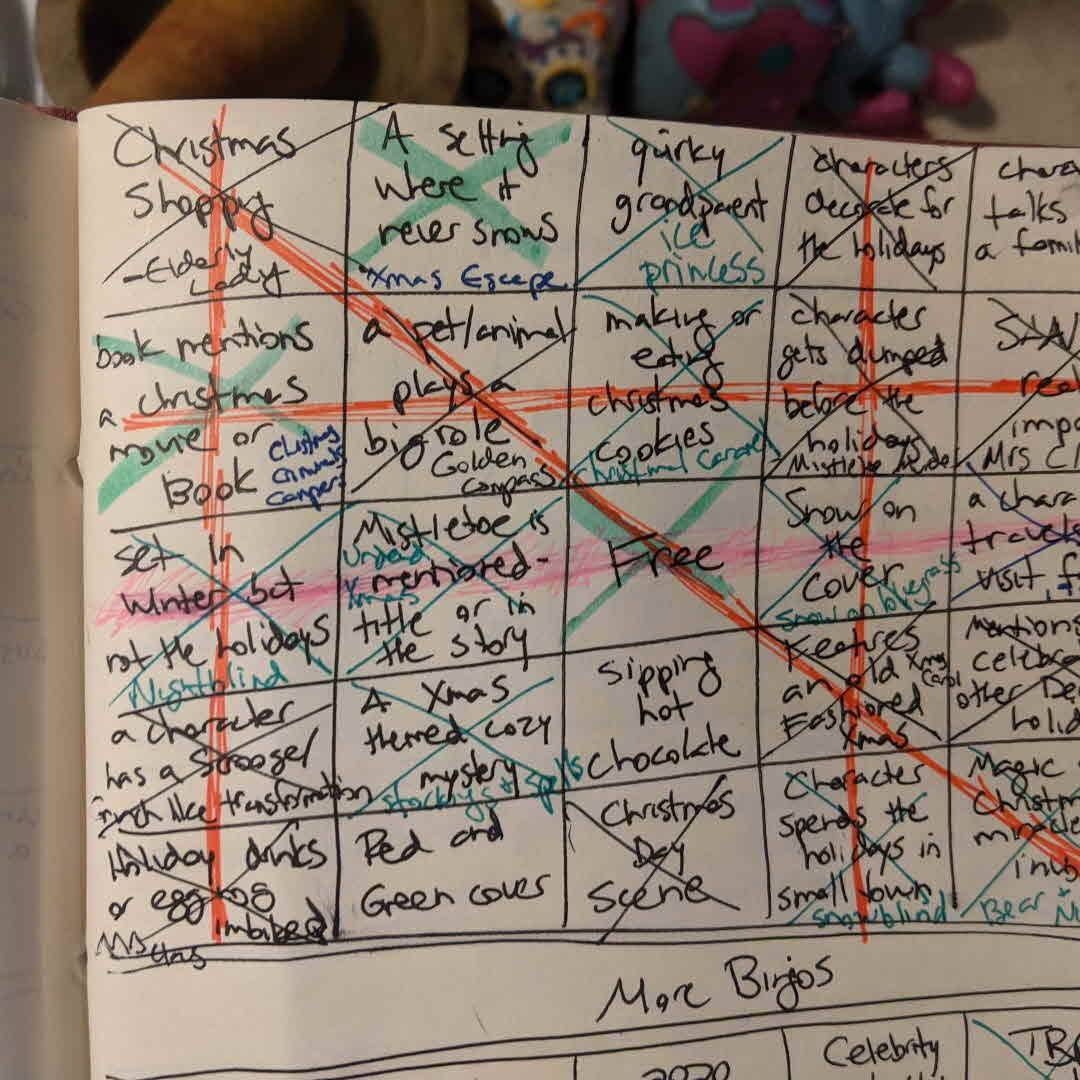 Christmas
Shoppy
-Elderly
Lady
A setting
where it
never snows
Xmas Escape
quirky
grandparent
ice
princess
characters
decorate for
the holidays
chara
talks
a famil
book mentions
a christmas
movie or
Book
Christmas
criminals
campers
a pet/animal
plays a
big role
Golden
compass
making or
eating
christmas
cookies
Christmas
character
gets dumped
before the
holidays
Mistletoe
real
impo
Mrs Cl
set in
Winter but
not the holidays
Nightblind
Mistletoe is
mentioned-
title or in
the story
Undead
Xmas
Free
Snow on
the
cover
Snow on bluegrass
a chara
travels
visit f
a character
has a Scrooge/
Grinch like transformation
A Xmas
themed cozy
mystery
stockings & spells
Sipping
hot
chocolate
Features
an old
Fashioned
Xmas
Xmas
Carol
Mentions
celebra
other De
holid
Holiday drinks
or eggnog
imbibed
Red and
Green cover
Christmas
Day
Scene
Character
spends the
holidays in
small town
snowblind
Magic
Christm
miracle
invo
Bear
More Bingos
2020
Celebrity
TB